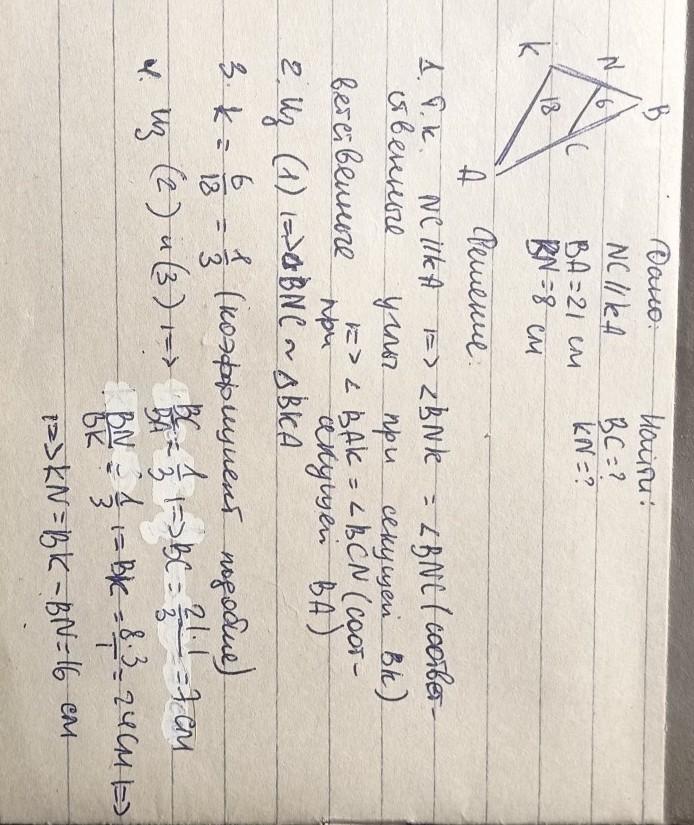 Дано:
NC//KA
BA=21 см
BN=8 см
Найти:
BC=?
KN=?
B
N
6
C
K
18
A
Решение:
1. Т.к. NC//KA |=> ∠BNK = ∠BNC (соответ-
ственные углы при секущей BK)
|=> ∠BAK = ∠BCN (соот-
ветственные при секущей BA)
2. Из (1) |=> ΔBNC ~ ΔBKA
3. k = 6/18 = 1/3 (коэффициент подобие)
4. Из (2) и (3) |=> BC/BA = 1/3 |=> BC = 21·1/3 = 7 см
BN/BK = 1/3 |= BK = 8·3/1 = 24 см |=>
|=> KN = BK - BN = 16 см